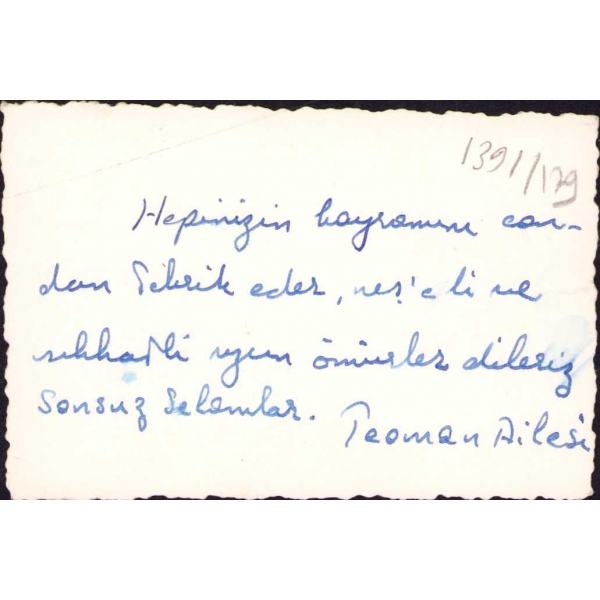 1391/179
Hepinizin bayramını can-
dan Tebrik eder, neş'eli ve
sıhhatli uzun ömürler dileriz
Sonsuz Selamlar. Teoman Ailesi